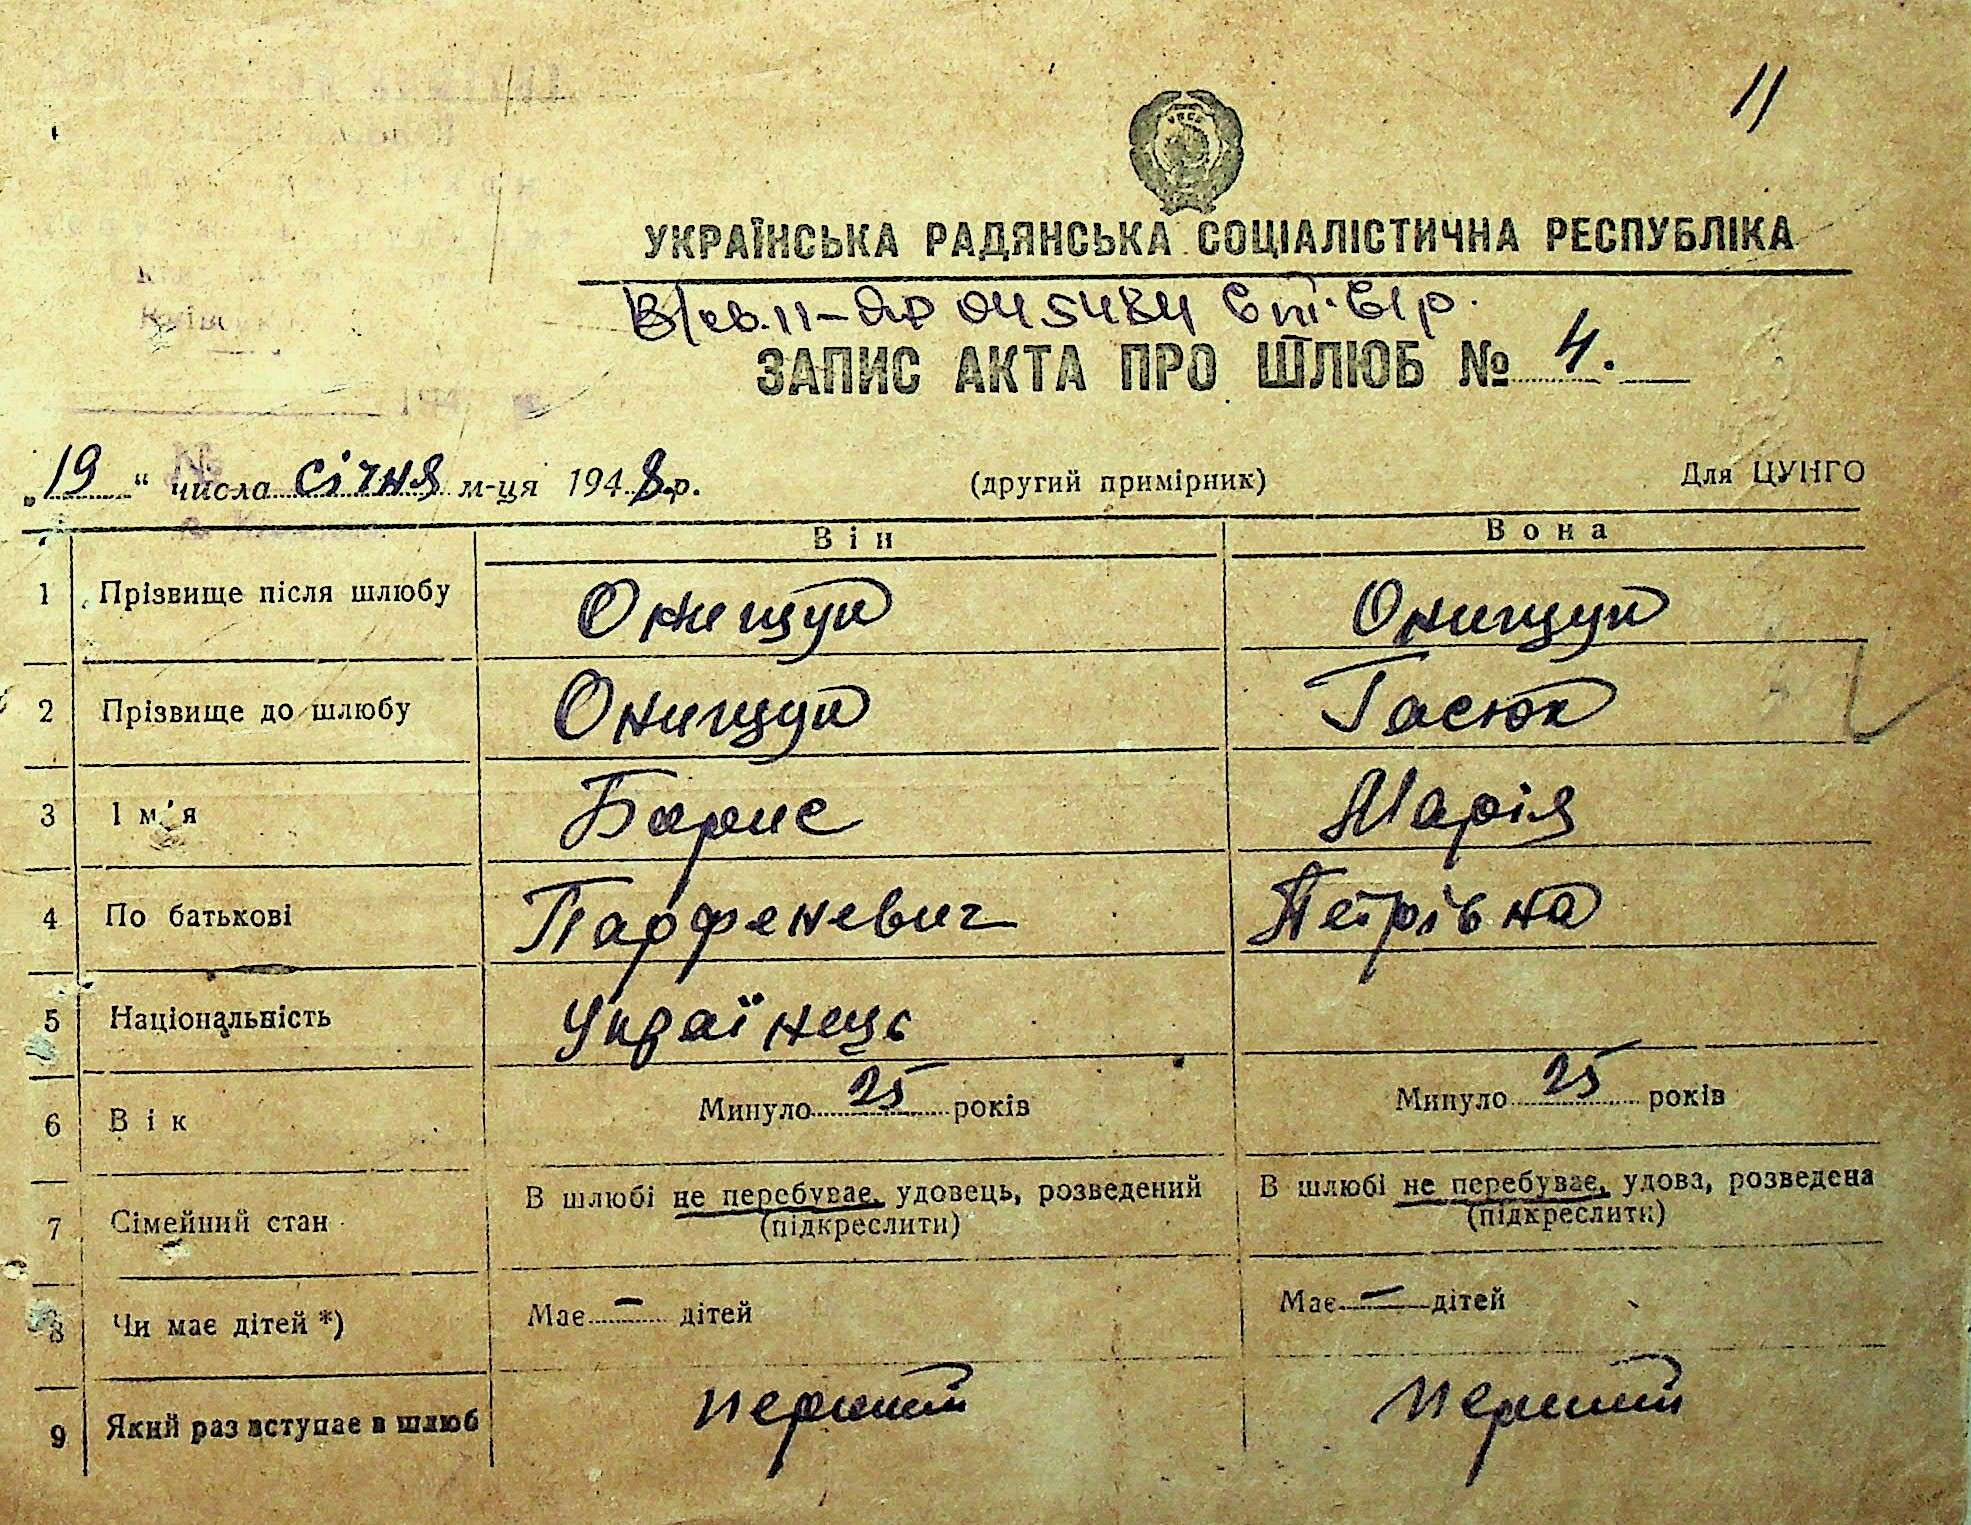 11
УКРАЇНСЬКА РАДЯНСЬКА СОЦІАЛІСТИЧНА РЕСПУБЛІКА
ЗАПИС АКТА ПРО ШЛЮБ № 4.
„19“ числа січня м-ця 1948 р. (другий примірник) Для ЦУНГО
Він Вона
1 Прізвище після шлюбу Онищук Онищук
2 Прізвище до шлюбу Онищук Гасюк
3 Ім'я Борис Марія
4 По батькові Парфеневич Петрівна
5 Національність Українець
6 Вік Минуло 25 років Минуло 25 років
7 Сімейний стан В шлюбі не перебуває, удовець, розведений В шлюбі не перебуває, удова, розведена
(підкреслити) (підкреслити)
8 Чи має дітей *) Має — дітей Має — дітей
9 Який раз вступає в шлюб перший перший